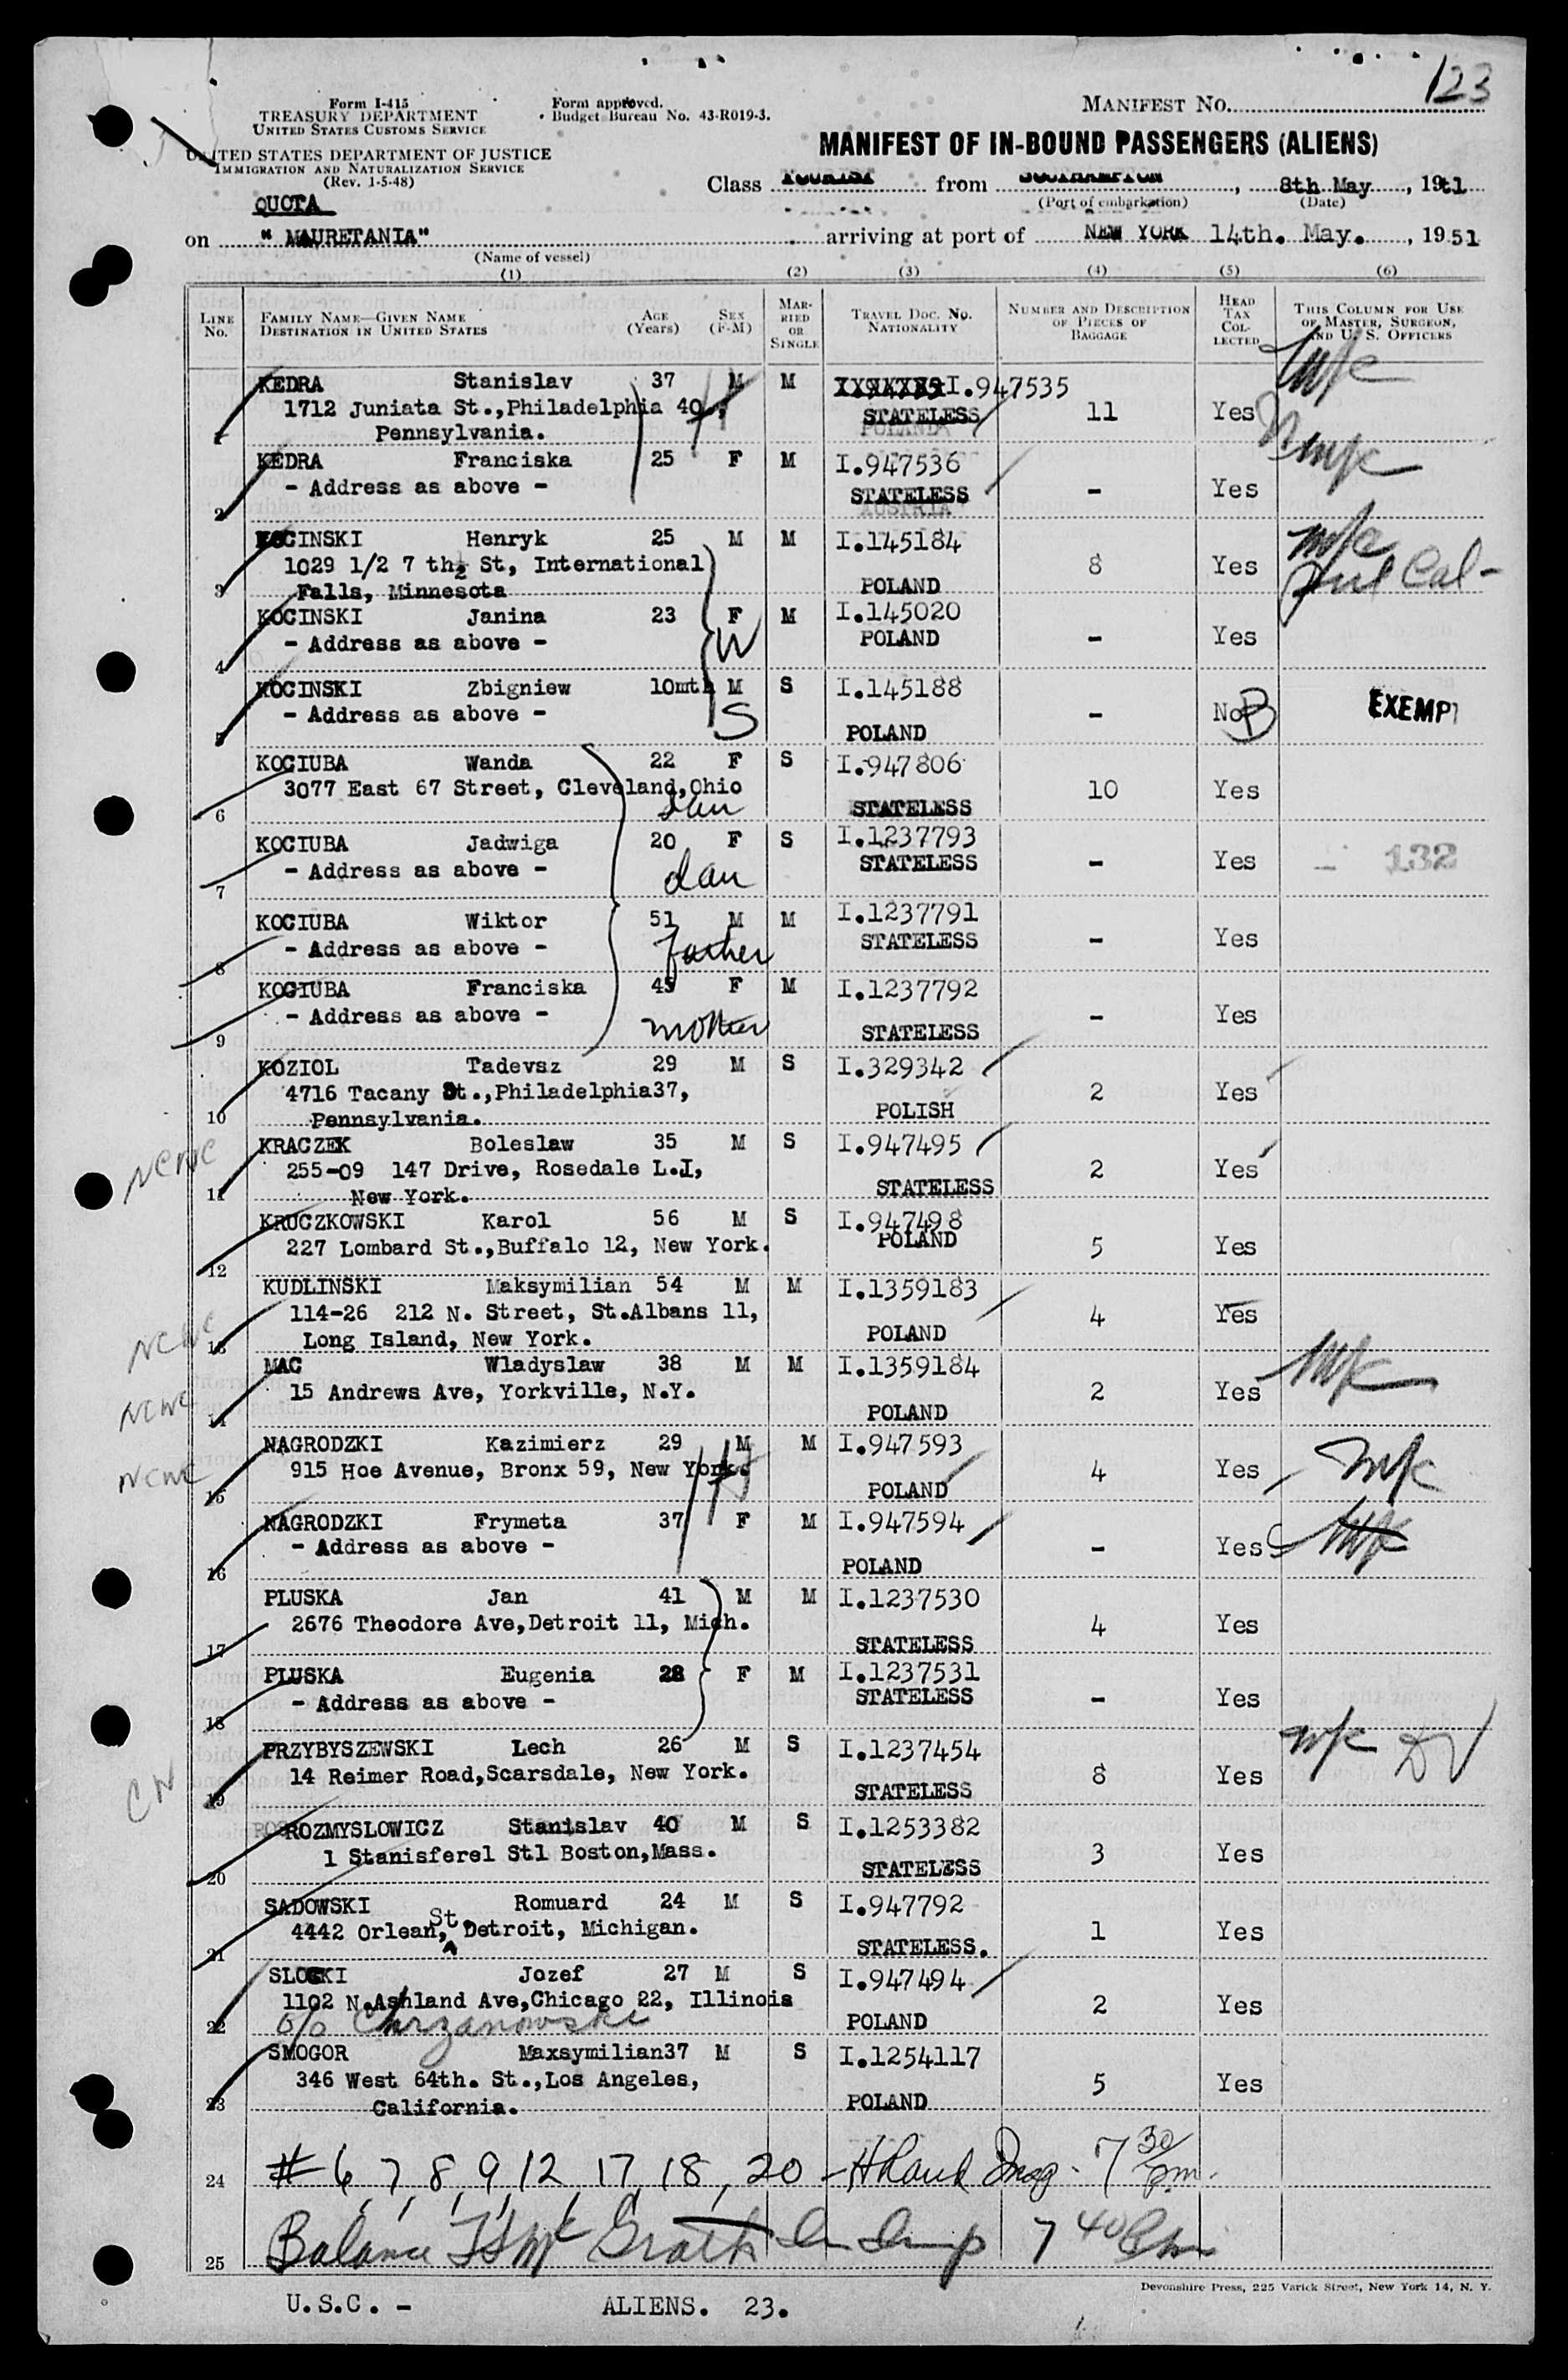 123
Form I-415
TREASURY DEPARTMENT
UNITED STATES CUSTOMS SERVICE
Form approved.
Budget Bureau No. 43-R019-3.
MANIFEST NO.
UNITED STATES DEPARTMENT OF JUSTICE
IMMIGRATION AND NATURALIZATION SERVICE
(Rev. 1-5-48)
MANIFEST OF IN-BOUND PASSENGERS (ALIENS)
Class TOURIST from SOUTHAMPTON, 8th May, 1951
(Port of embarkation) (Date)
QUOTA
on "MAURETANIA" arriving at port of NEW YORK 14th. May., 1951
(Name of vessel)
(1) (2) (3) (4) (5) (6)
LINE NO. FAMILY NAME—GIVEN NAME DESTINATION IN UNITED STATES AGE (Years) SEX (F-M) MARRIED OR SINGLE TRAVEL DOC. NO. NATIONALITY NUMBER AND DESCRIPTION OF PIECES OF BAGGAGE HEAD TAX COLLECTED THIS COLUMN FOR USE OF MASTER, SURGEON, AND U. S. OFFICERS
KEDRA Stanislav 37 M M I.947535
1712 Juniata St.,Philadelphia 40., STATELESS 11 Yes
Pennsylvania.
KEDRA Franciska 25 F M I.947536
2 - Address as above - STATELESS - Yes
AUSTRIA
KOCINSKI Henryk 25 M M I.145184
1029 1/2 7 th½ St, International 8 Yes
3 Falls, Minnesota POLAND
KOCINSKI Janina 23 F M I.145020
4 - Address as above - W POLAND - Yes
KOCINSKI Zbigniew 10mth M S I.145188
5 - Address as above - S POLAND - No B EXEMPT
KOCIUBA Wanda 22 F S I.947806
6 3077 East 67 Street, Cleveland,Ohio STATELESS 10 Yes
dau
KOCIUBA Jadwiga 20 F S I.1237793
7 - Address as above - dau STATELESS - Yes 132
KOCIUBA Wiktor 51 M M I.1237791
8 - Address as above - father STATELESS - Yes
KOCIUBA Franciska 45 F M I.1237792
9 - Address as above - mother STATELESS - Yes
KOZIOL Tadevsz 29 M S I.329342
4716 Tacany St.,Philadelphia37, 2 Yes
10 Pennsylvania. POLISH
NCWC
KRACZEK Boleslaw 35 M S I.947495
255-09 147 Drive, Rosedale L.I, 2 Yes
11 New York. STATELESS
KRUCZKOWSKI Karol 56 M S I.947498
12 227 Lombard St.,Buffalo 12, New York. POLAND 5 Yes
KUDLINSKI Maksymilian 54 M M I.1359183
114-26 212 N. Street, St.Albans 11, 4 Yes
13 Long Island, New York. POLAND
NCWC
MAC Wladyslaw 38 M M I.1359184
14 15 Andrews Ave, Yorkville, N.Y. POLAND 2 Yes
NCWC
NAGRODZKI Kazimierz 29 M M I.947593
15 915 Hoe Avenue, Bronx 59, New York. POLAND 4 Yes
NCWC
NAGRODZKI Frymeta 37 F M I.947594
16 - Address as above - POLAND - Yes
PLUSKA Jan 41 M M I.1237530
17 2676 Theodore Ave,Detroit 11, Mich. STATELESS 4 Yes
PLUSKA Eugenia 28 F M I.1237531
18 - Address as above - STATELESS - Yes
PRZYBYSZEWSKI Lech 26 M S I.1237454
19 14 Reimer Road,Scarsdale, New York. STATELESS 8 Yes
ROZMYSLOWICZ Stanislav 40 M S I.1253382
20 1 Stanisferel Stl Boston,Mass. STATELESS 3 Yes
SADOWSKI Romuard 24 M S I.947792
21 4442 Orlean, St. Detroit, Michigan. STATELESS. 1 Yes
Jozef 27 M S I.947494
1102 N.Ashland Ave,Chicago 22, Illinois 2 Yes
22 c/o Chrzanowski POLAND
SMOGOR Maxsymilian37 M S I.1254117
346 West 64th. St.,Los Angeles, 5 Yes
23 California. POLAND
24 # 6, 7, 8, 9, 12, 17, 18, 20 - 7 30/pm.
25 Balance McGrath 7 40
Devonshire Press, 225 Varick Street, New York 14, N. Y.
U.S.C. - ALIENS. 23.